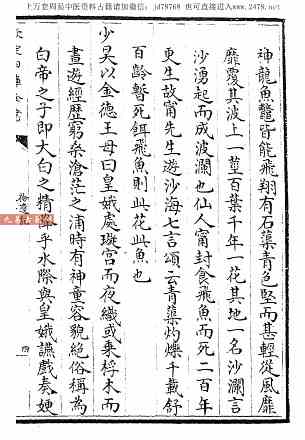 上万套周易中医资料古籍请加微信：jd78768 也可直接进入www.2478.net/
神龍魚鼈皆能飛翔有石蕖青色堅而甚輕從風靡
靡覆其波上一莖百葉千年一花其地一名沙瀾言
沙湧起而成波瀾也仙人甯封食飛魚而死二百年
更生故甯先生遊沙海七言頌云青蕖灼爍千載舒
百齡暫死餌飛魚則此花此魚也
少昊以金德王母曰皇娥處璇宮而夜織或乗桴木而
晝遊經歴窮桑滄茫之浦時有神童容貌絕俗稱為
白帝之子即太白之精降乎水際與皇娥讌戲奏㛹
四